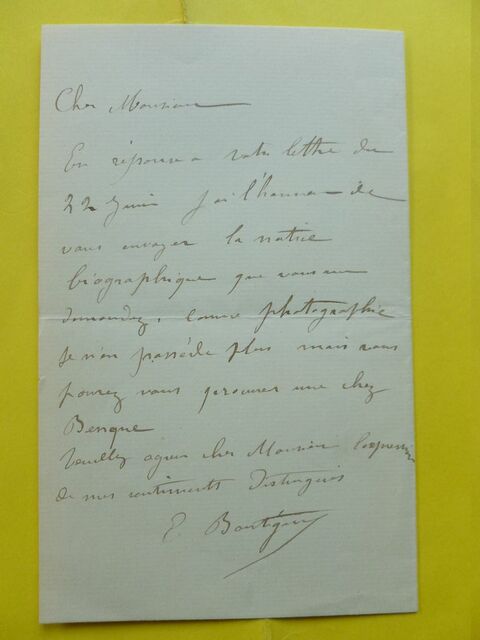 Cher Monsieur
En réponse a votre lettre du
22 Juin j'ai l'honneur de
vous envoyer la notice
biographique que vous me
demandez, comme photographie
je n'en possède plus mais vous
pouvez vous procurer une chez
Benque
Veuillez agreer cher Monsieur l'expression
de mes sentiments distingués
E.